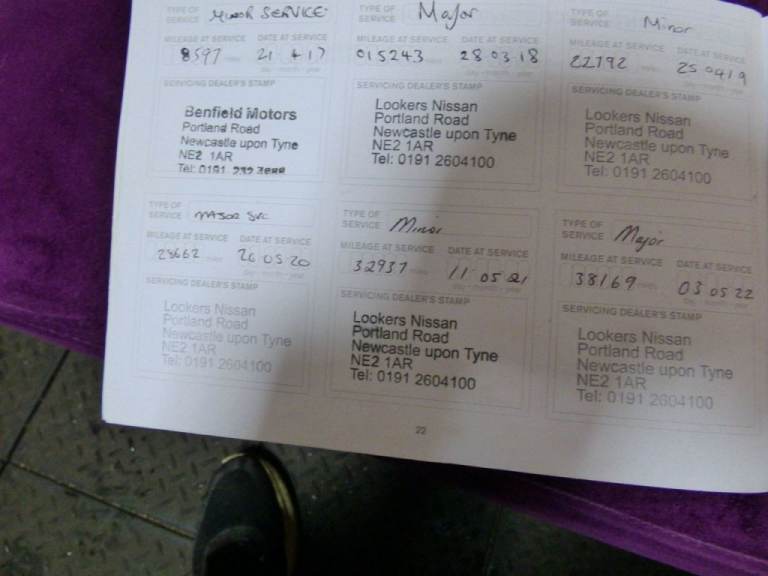 TYPE OF SERVICE MINOR SERVICE
MILEAGE AT SERVICE DATE AT SERVICE
8597 miles 21 4 17
day month year
SERVICING DEALER'S STAMP
Benfield Motors
Portland Road
Newcastle upon Tyne
NE2 1AR
Tel: 0191
TYPE OF SERVICE Major
MILEAGE AT SERVICE DATE AT SERVICE
015243 miles 28 03 18
day month year
SERVICING DEALER'S STAMP
Lookers Nissan
Portland Road
Newcastle upon Tyne
NE2 1AR
Tel: 0191 2604100
TYPE OF
SERVICE Minor
MILEAGE AT SERVICE DATE AT SERVICE
22792 miles 25 04 19
day month year
SERVICING DEALER'S STAMP
Lookers Nissan
Portland Road
Newcastle upon Tyne
NE2 1AR
Tel: 0191 2604100
TYPE OF
SERVICE MAJOR SVC
MILEAGE AT SERVICE DATE AT SERVICE
28662 miles 26 05 20
day month year
SERVICING DEALER'S STAMP
Lookers Nissan
Portland Road
Newcastle upon Tyne
NE2 1AR
Tel: 0191 2604100
TYPE OF
SERVICE Minor
MILEAGE AT SERVICE DATE AT SERVICE
32937 miles 11 05 21
day month year
SERVICING DEALER'S STAMP
Lookers Nissan
Portland Road
Newcastle upon Tyne
NE2 1AR
Tel: 0191 2604100
TYPE OF
SERVICE Major
MILEAGE AT SERVICE DATE AT SERVICE
38169 miles 03 05 22
day month year
SERVICING DEALER'S STAMP
Lookers Nissan
Portland Road
Newcastle upon Tyne
NE2 1AR
Tel: 0191 2604100
22